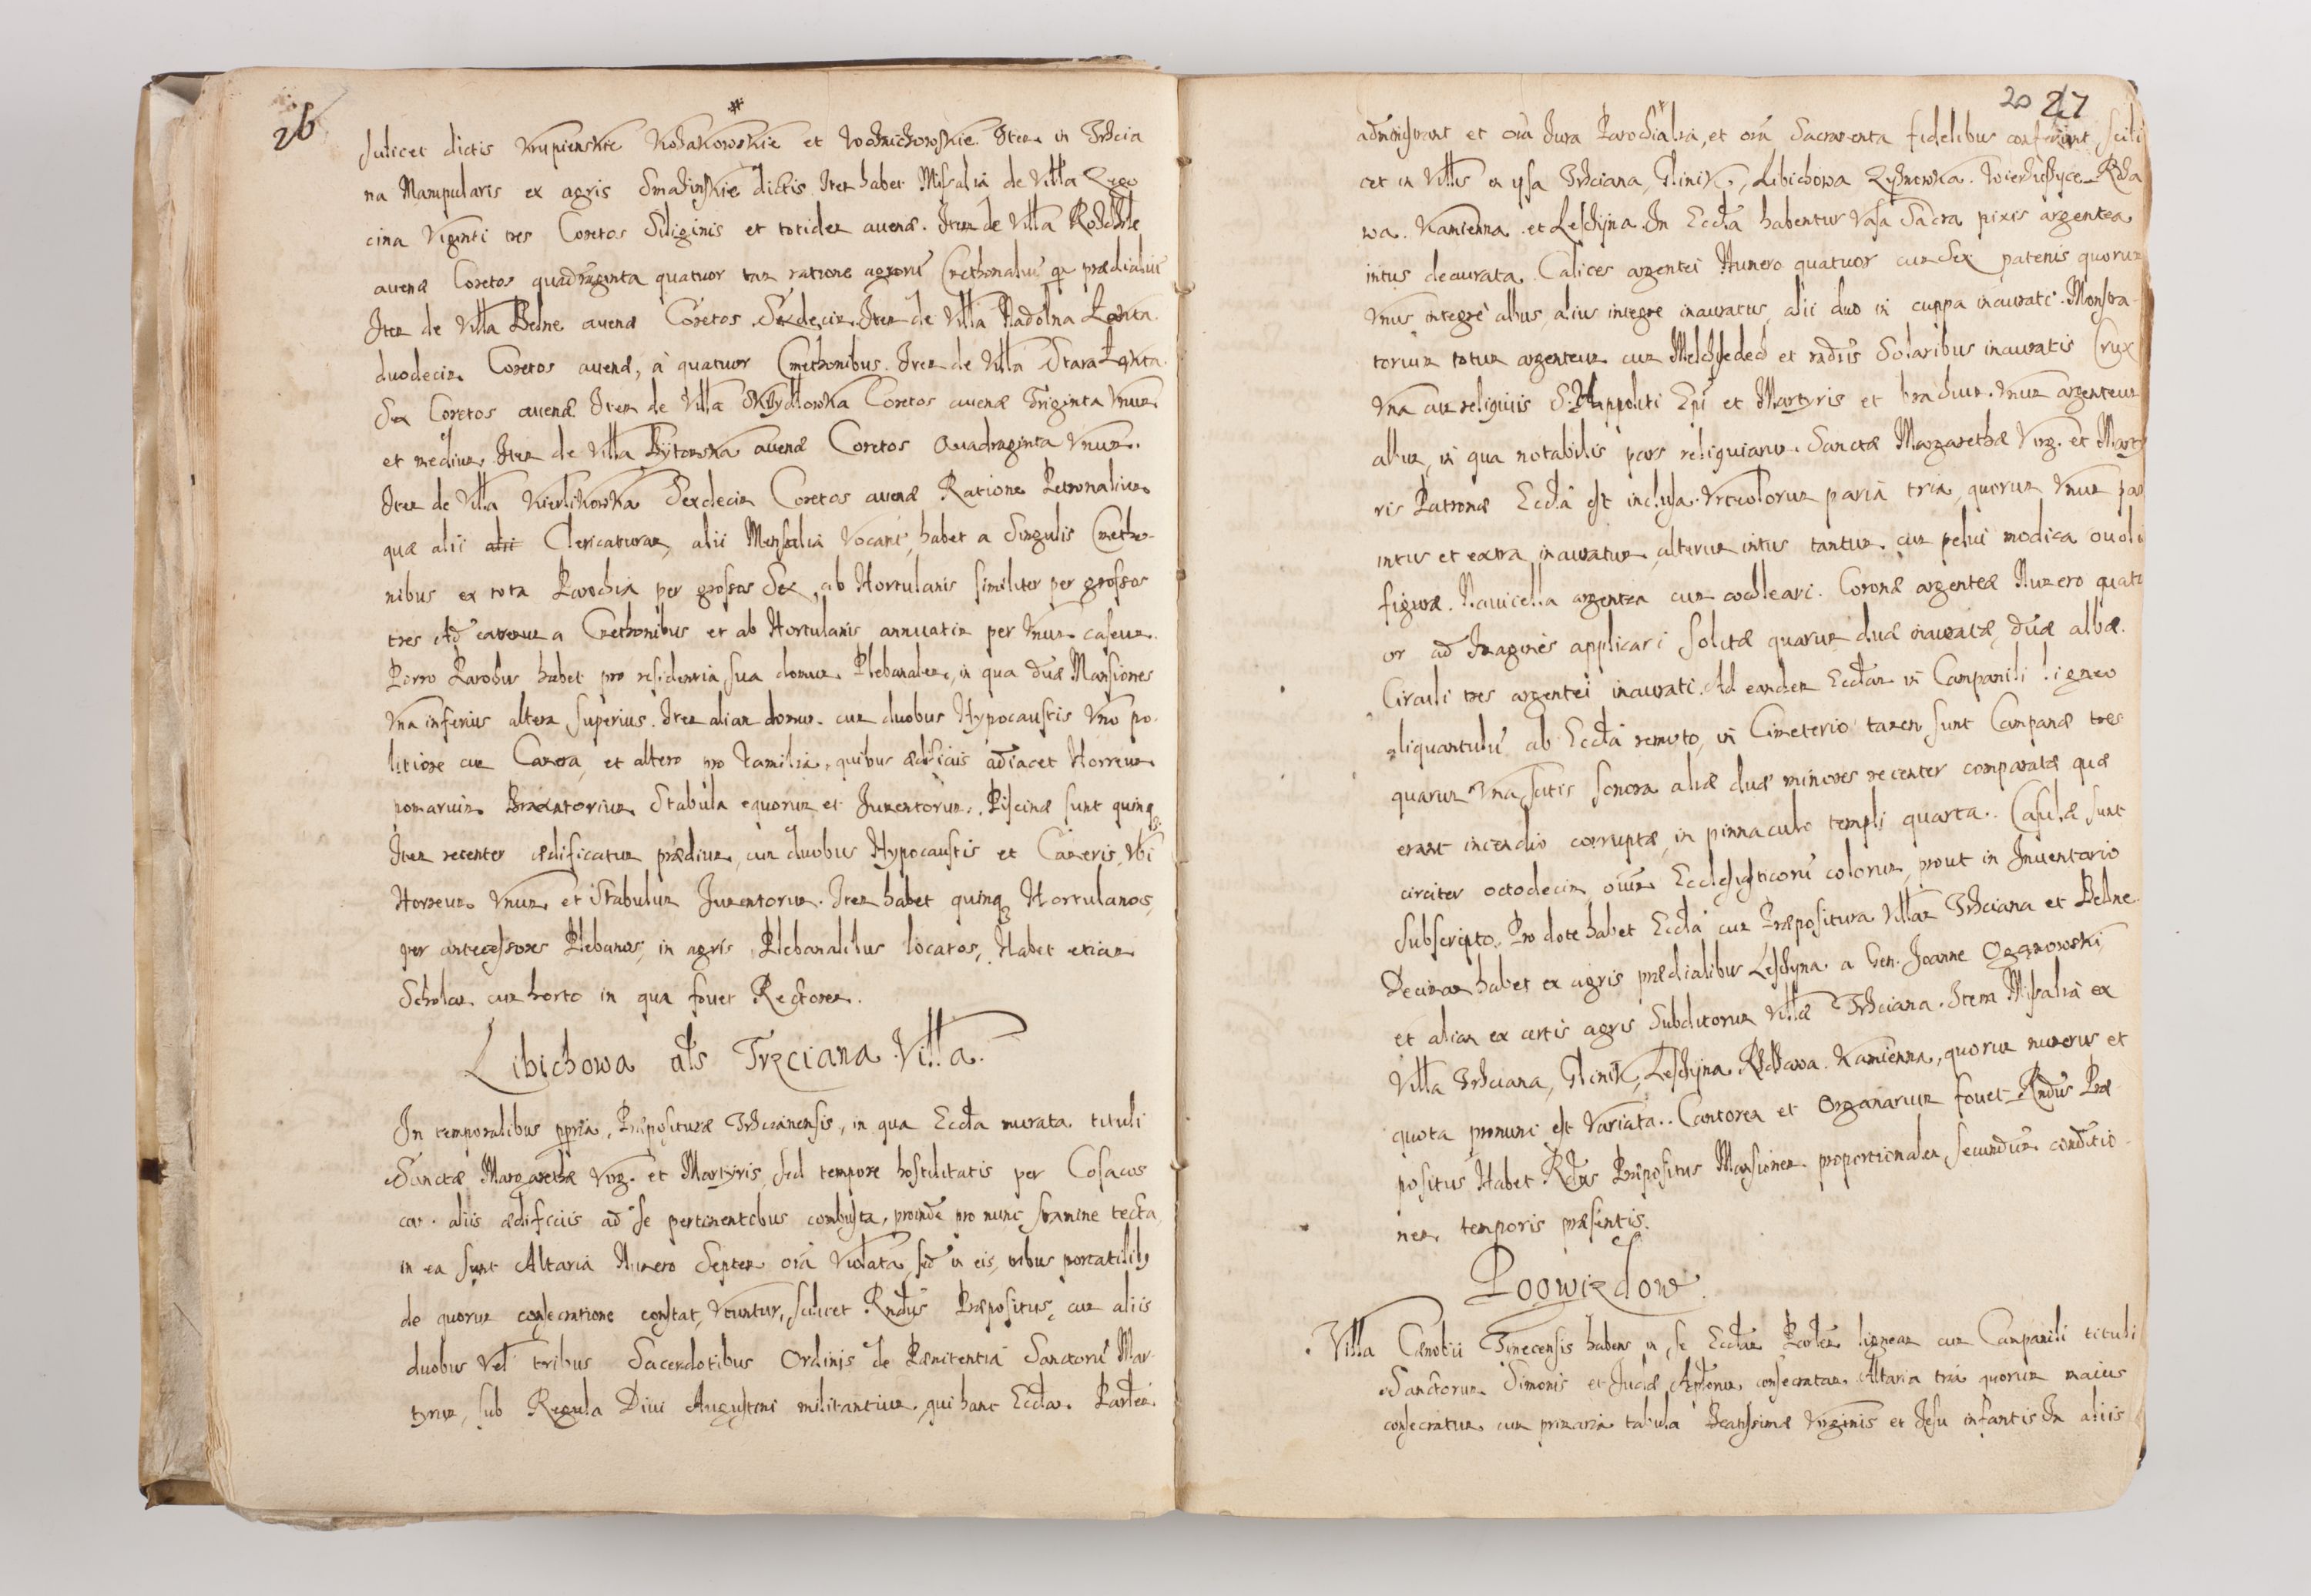 26
scilicet dictis Krupienskie Kosakowskie et Wosnichowskie Item in Trzcia
na Manipularis ex agris Smazinskie dictis. Item habet Missalia de Villa Zego
cina Viginti tres Coretos Siliginis et totidem auenæ. Item de Villa Rozdziele
auenæ Coretos quadraginta quatuor tam ratione agrorũ Cmethonaliũ q̃ prædialiũ
Item de Villa Belne auenæ Coretos Sexdecim. Item de Villa Nadolna Łąkta.
duodecim Coretos auenæ, à quatuor Cmethonibus. Item de Villa Stara Łąkta.
Sex Coretos auenæ Item de Villa Skrydlowka Coretos auenæ Triginta Vnum
et medium. Item de Villa Bytomska auenæ Coretos Quadraginta Vnum.
Item de Villa Kierlikowka Sexdecim Coretos auenæ Ratione Petronalium
quæ alii alii Clericaturam, alii Mensalia Vocant, habet a Singulis Cmetho-
nibus ex tota Parochia per grossos Sex, ab Hortulanis similiter per grossos
tres Ad eatenum a Cmethonibus et ab Hortulanis annuatim per Vnum caseum.
Porro Parochus habet pro residentia sua domum Plebanalem, in qua duæ Mansiones
Vna inferius altera superius. Item aliam domum cum duobus Hypocaustis Vno po-
litiore cum Camera, et altero pro Familia, quibus ædificiis adiacet Horreum
pomarium Braxatorium Stabula equorum et Iumentorum. Piscinæ sunt quinq
Item recenter ædificatum prædium, cum duobus Hypocaustis et Cameris, Vbi
Horreum Vnum et Stabulum Iumentorum. Item habet quinq Hortulanos,
per antecessores Plebanos, in agris Plebanalibus locatos, Habet etiam
Scholam cum horto in qua fouet Rectorem.
Libichowa als Trzciana Villa.
In temporalibus ppria, Præposituræ Trzcianensis, in qua Eccla murata tituli
Sanctæ Margarethæ Virg. et Martyris, sed tempore hostilitatis per Cosacos
cum aliis ædificiis ad se pertinentibus combusta, proinde pro nunc stramine tecta,
in ea sunt Altaria Numero Septem oia Violata, sed in eis, tribus portatilib
de quorum consecratione constat, Vtuntur, scilicet Rndus Præpositus, cum aliis
duobus Vel tribus Sacerdotibus Ordinis de Pænitentia Sanctorũ Mar-
tyrum, sub Regula Diui Augustini militantium, qui hanc Ecclam Parlem
20 27
administrant et oia Iura Parochialia, et oia Sacramenta fidelibus conferunt, scili
cet in Villis in ipsa Trzciana, Glinik, Libichowa Łysnowka. Wierzchyce Rdza
wa. Kamienna et Leszczyna. In Eccla habentur Vasa Sacra pixis argentea
intus deaurata. Calices argentei Numero quatuor cum Sex patenis quorum
Vnus integrè albus, alius integrè inauratus, alii duo in cuppa inaurati. Monstra-
torium totum argenteum cum Melchisedech et radiis Solaribus inauratis Crux
Vna cum reliquiis S. Hippoliti Epi et Martyris et brachium Vnum argenteum
album, in qua notabilis pars reliquiarum Sanctæ Margarethæ Virg. et Marty
ris Patronæ Eccla est inclusa. Vrceolorum paria tria, quorum Vnum par
intus et extra inauratum, alterum intus tantum cum pelui modica ouali
figuræ. Nauicella argentea cum cochleari. Coronæ argenteæ Numero quatu
or ad Imagines applicari solitæ quarum duæ inauratæ, duæ albæ.
Circuli tres argentei inaurati. Ad eandem Ecclam in Campanili ligneo
aliquantulũ ab Eccla remoto, in Cimeterio tamen sunt Campanæ tres
quarum Vna satis sonora aliæ duæ minores recenter comparatæ quæ
erant incendio corruptæ, in pinnaculo templi quarta. Casulæ sunt
circiter octodecim oium Ecclesiasticorũ colorum, prout in Inuentario
subscripto. Pro dote habet Eccla cum Præpositura Villam Trzciana et Belne.
Decimam habet ex agris prædialibus Leszczyna a Gen. Joanne Ozarowski
et aliam ex certis agris Subditorum Villæ Trzciana. Item Missalia ex
Villa Trzciana, Glinik, Leszczyna Rdzawa. Kamienna, quorum numerus et
quota pronunc est Variata. Cantorem et Organarium fouet Rndus Præ
positus Habet Rdus Præpositus Mansionem proportionalem secundum conditio-
nem temporis præsentis.
Pogwizdow.
Villa Cænobii Tinecensis habens in se Ecclam Parlem ligneam cum Campanili tituli
Sanctorum Simonis et Iudæ Aplorum consecratam. Altaria tria quorum maius
consecratum cum primaria tabula Beatissimæ Virginis et Jesu infantis In aliis